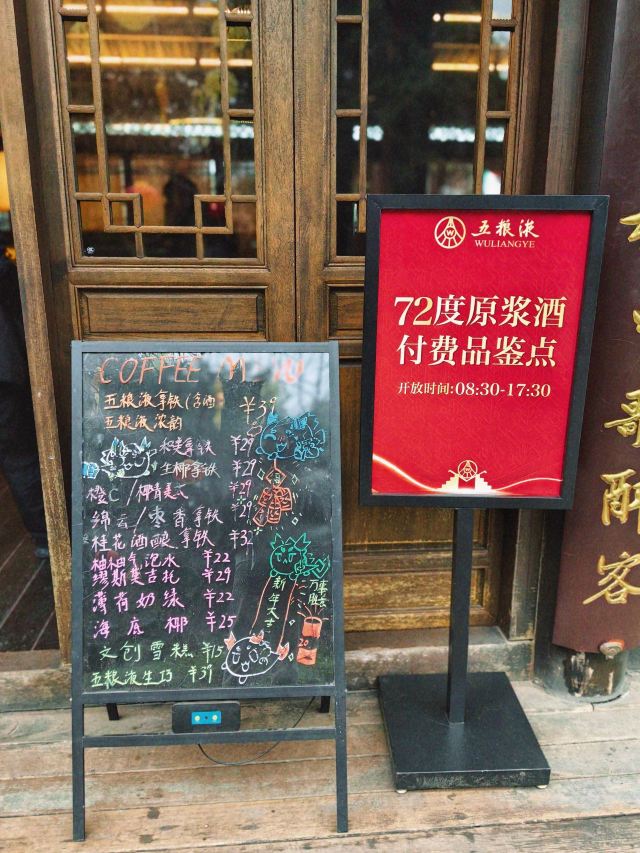 COFFEE
五粮液拿铁(含酒 ¥39
五粮液浓韵
和美拿铁 ¥29
生椰拿铁 ¥29
橙C/椰青美式 ¥29
绵云/枣香拿铁 ¥29
桂花酒酿拿铁 ¥32
柚柚气泡水 ¥22
缪斯莫吉托 ¥29
薄荷奶绿 ¥22
海底椰 ¥25
文创雪糕 ¥15
五粮液生巧 ¥39
新年大吉
万事
五粮液
WULIANGYE
72度原浆酒
付费品鉴点
开放时间:08:30-17:30
歌
醉
客